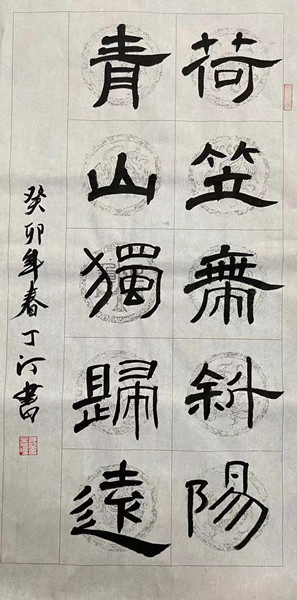 荷笠帶斜陽
青山獨歸遠
癸卯年春丁汀書